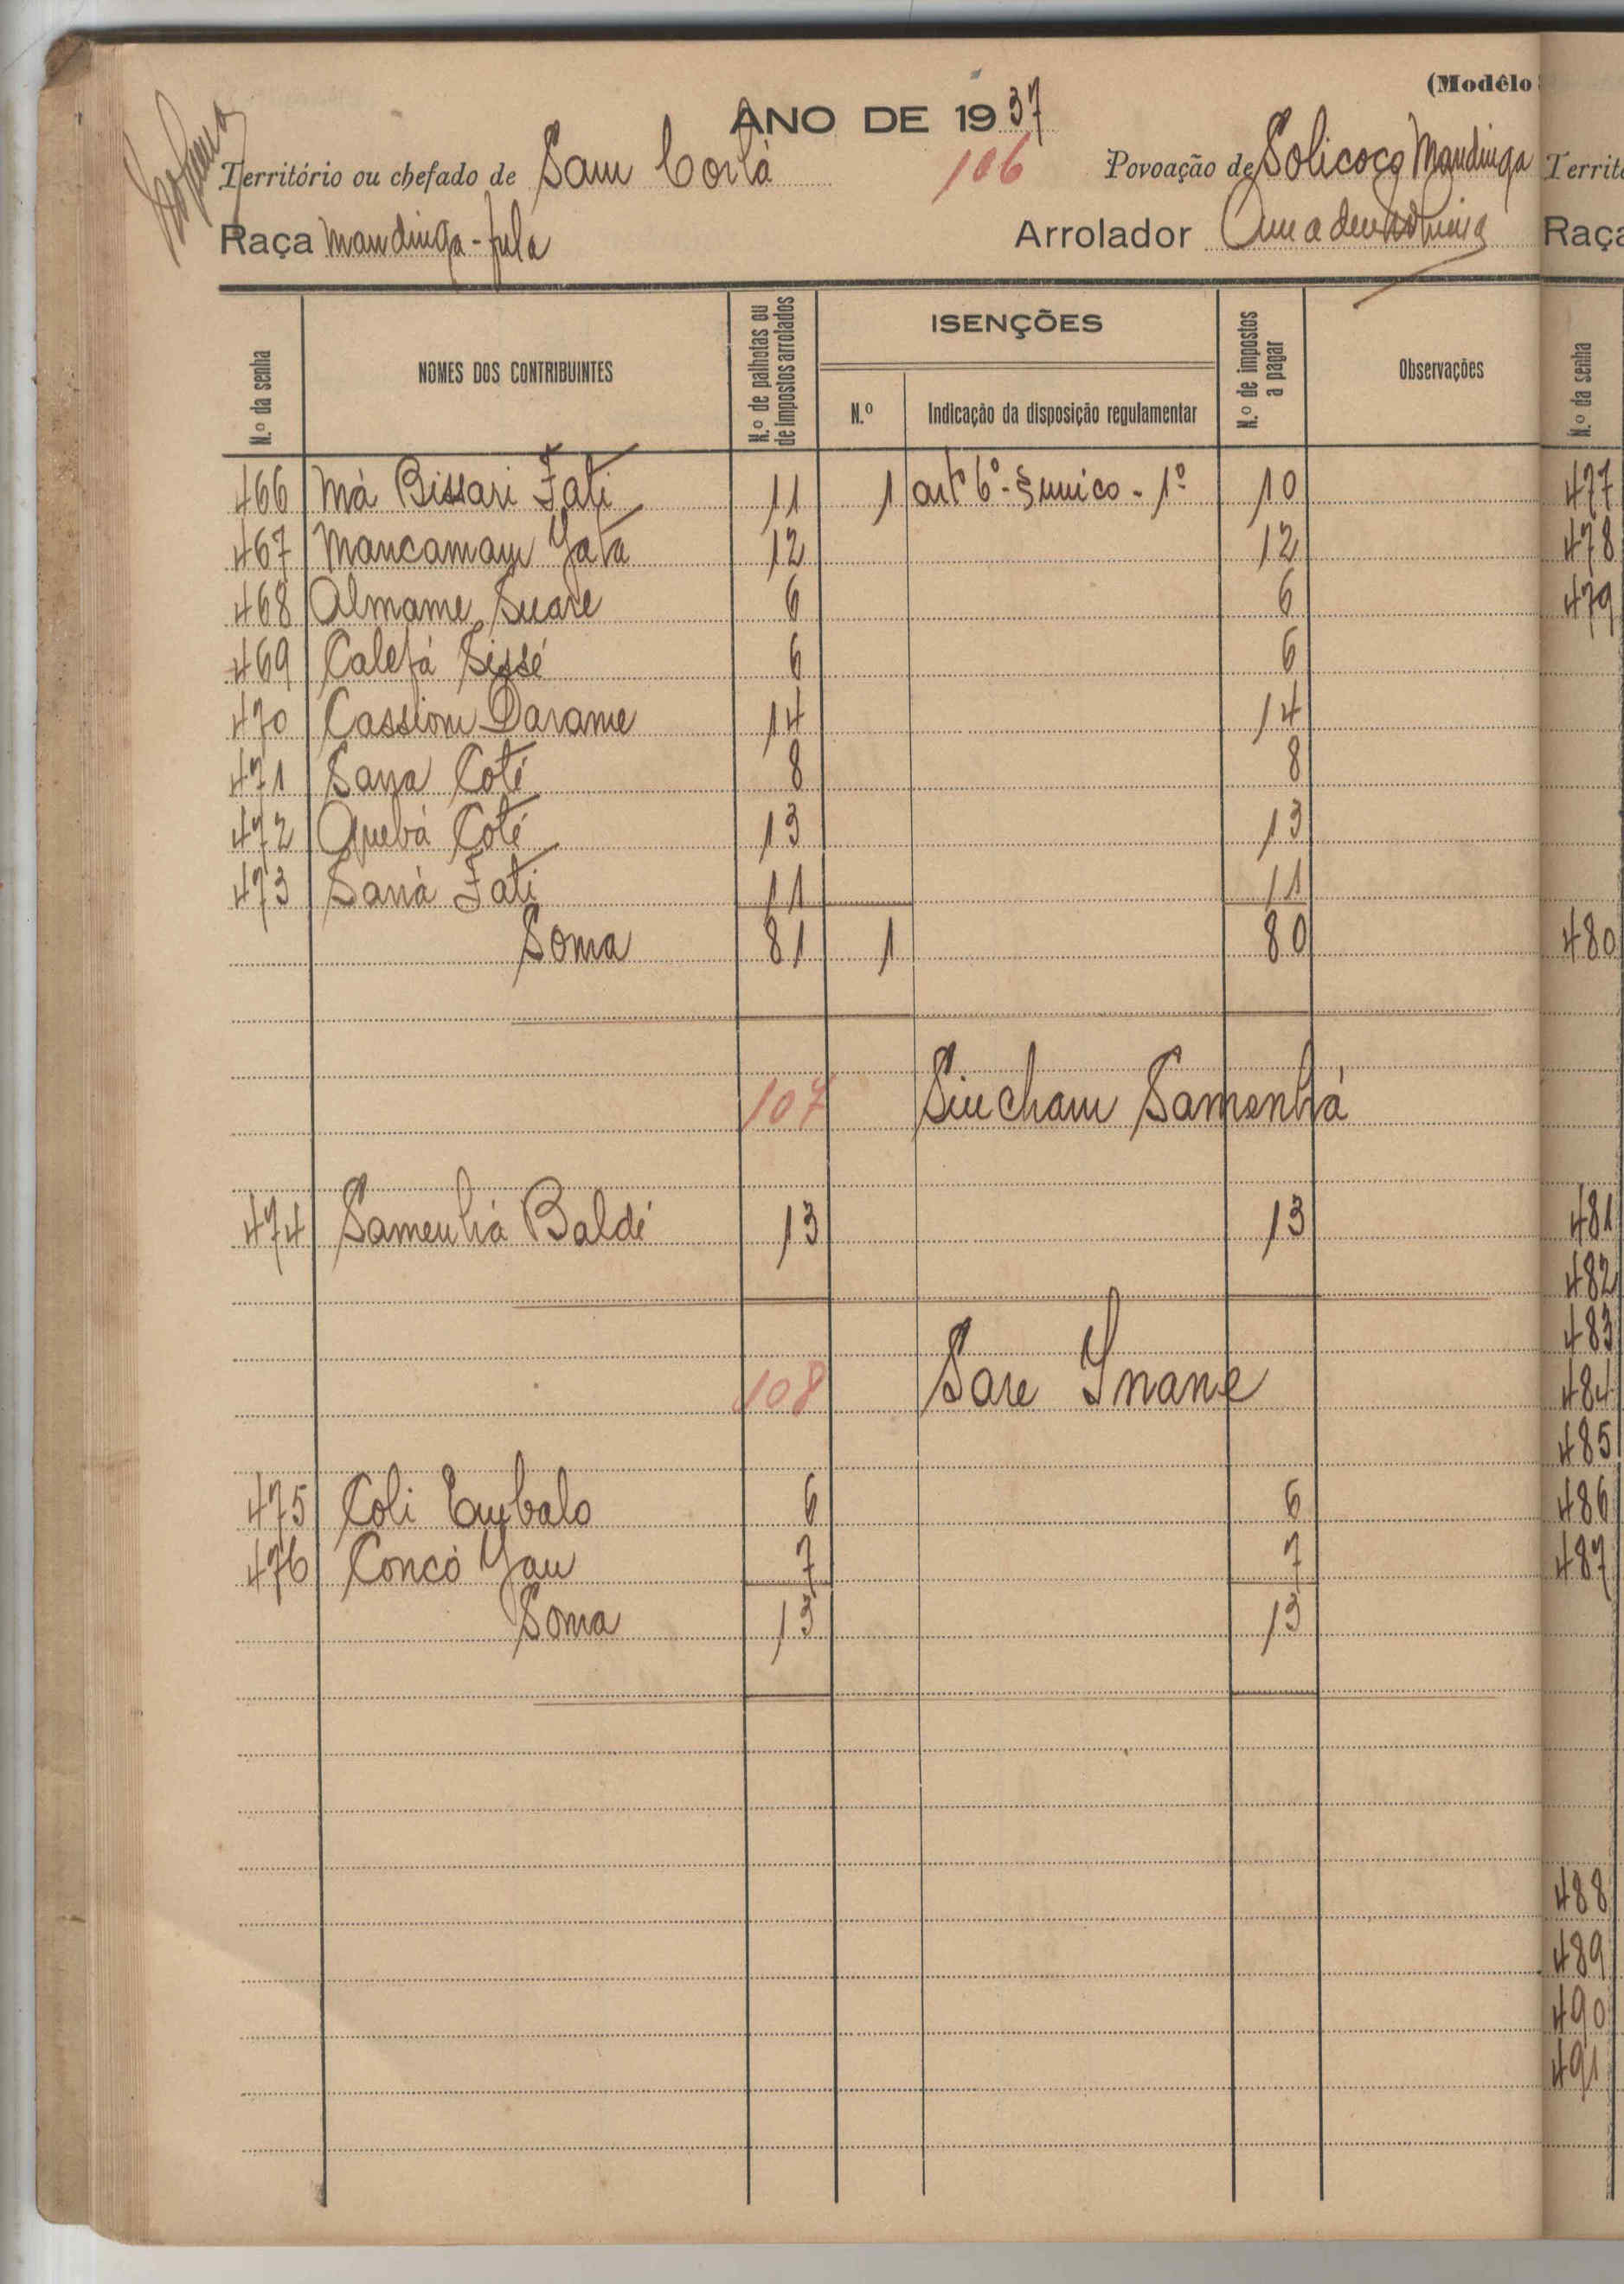 (Modêlo
ANO DE 1937
Território ou chefado de Sam Corlà 106 Povoação de Solicoço Mandinga
Raça Mandinga-fula Arrolador
N.º da senha NOMES DOS CONTRIBUINTES N.º de palhotas ou de impostos arrolados ISENÇÕES N.º Indicação da disposição regulamentar N.º de impostos a pagar Observações
466 Mà Bissari Fati 11 1 art 6º - § unico - 1º 10
467 Mancamam Jata 12 12
468 Almame Suare 6 6
469 Calefá Sissé 6 6
470 Cassiom Darame 14 14
471 Sana Coté 8 8
472 Quebá Coté 13 13
473 Sanà Fati 11 11
Soma 81 1 80
107 Sincham Samenhá
474 Samenhá Baldé 13 13
108 Sare Ynane
475 Coli Embalo 6 6
476 Concó Jau 7 7
Soma 13 13
Territ
Raça
N.º da senha
477
478
479
480
481
482
483
484
485
486
487
488
489
490
491